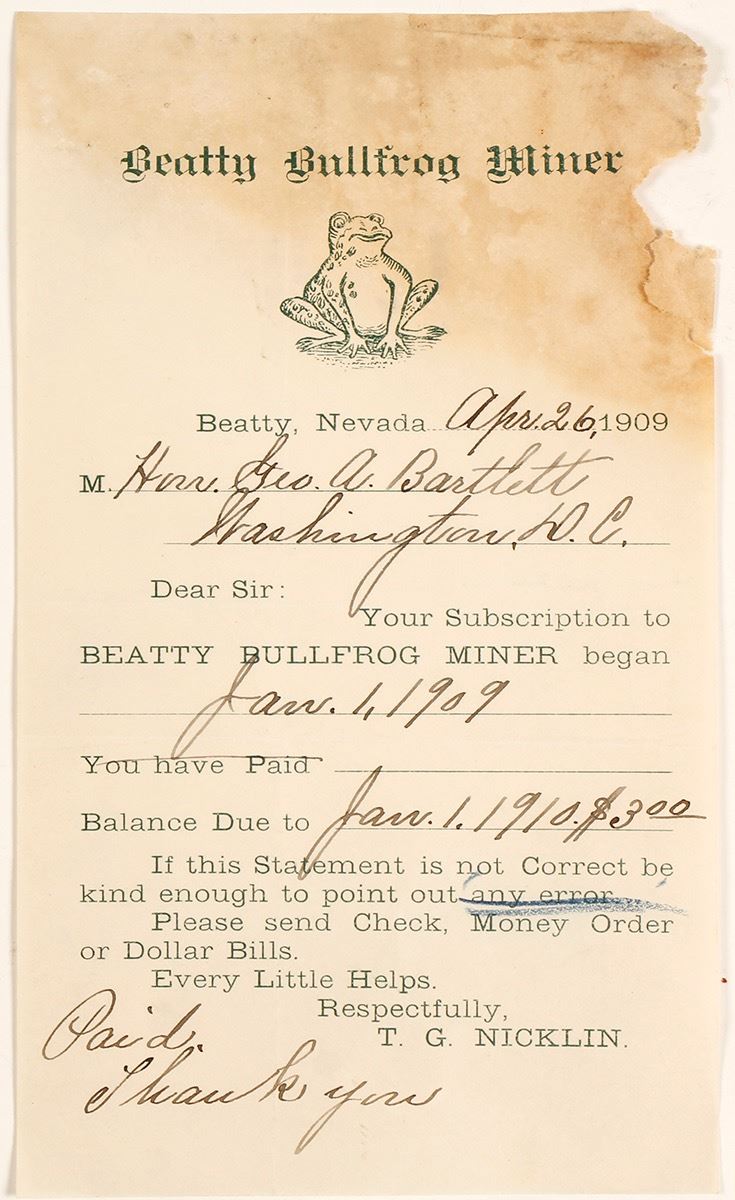 Beatty Bullfrog Miner
Beatty, Nevada Apr. 26, 1909
M. Hon. Geo. A. Bartlett
Washington, D. C.
Dear Sir:
Your Subscription to
BEATTY BULLFROG MINER began
Jan. 1, 1909
You have Paid
Balance Due to Jan. 1. 1910. $3 00
If this Statement is not Correct be
kind enough to point out any error.
Please send Check, Money Order
or Dollar Bills.
Every Little Helps.
Respectfully,
T. G. NICKLIN.
Paid.
Thank you